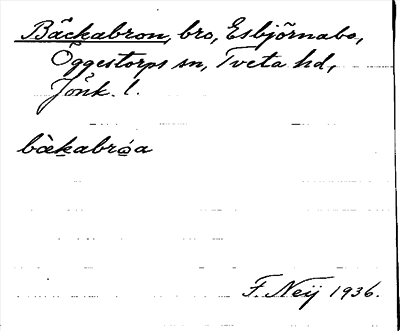 Bäckabron, bro, Esbjörnabo,
Öggestorps sn, Tveta hd,
Jönk. l.
bàkabrǫ́a
F. Neij 1936.